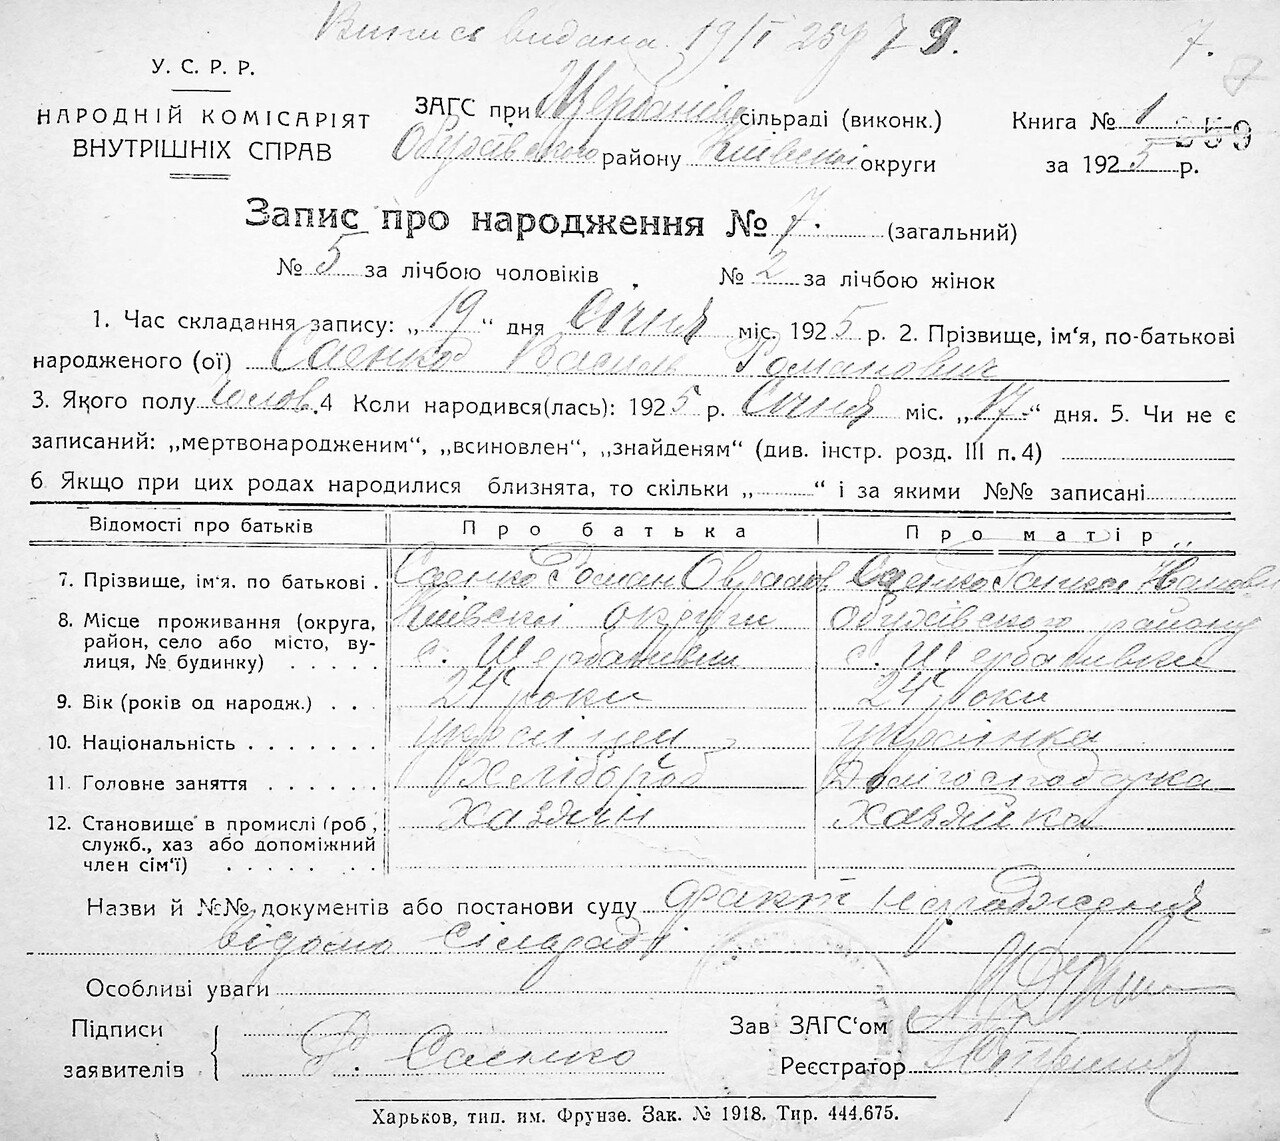 Випись видана 19/I 25р 7
7.
У. С. Р. Р.
НАРОДНІЙ КОМІСАРІЯТ
ВНУТРІШНІХ СПРАВ
ЗАГС при Щербанівс сільраді (виконк.)
Обухівського району Київської округи
Книга № 1 259
за 1925 р.
Запис про народження № 7. (загальний)
№ 5 за лічбою чоловіків № 2 за лічбою жінок
1. Час складання запису: „19“ дня Січня міс. 1925 р. 2. Прізвище, ім‘я, по-батькові
народженого (ої) Саенко Василь Романович
3. Якого полу чолов. 4 Коли народився(лась): 1925 р. Січня міс. „17“ дня. 5. Чи не є
записаний: „мертвонародженим“, „всиновлен“, „знайденям“ (див. інстр. розд. III п. 4)
6 Якщо при цих родах народилися близнята, то скільки „ “ і за якими №№ записані
Відомості про батьків Про батька Про матір
7. Прізвище, ім‘я. по батькові . Саенко Роман Саенко Ганна Іванов
8. Місце проживання (округа, Київскої округи Обухівского району
район, село або місто, ву-
лиця, № будинку) . . . . . с. Щербанівки с. Щербанівки
9. Вік (років од народж.) . . . 24 роки 24 роки
10. Національність . . . . . . . українец українка
11. Головне заняття . . . . . . Хлібороб Домгосподарка
12. Становище в промислі (роб, Хазяін хазяйка
служб., хаз або допоміжний
член сім‘ї) . . . . . . .
Назви й №№ документів або постанови суду факт народження
відомо сільраді
Особливі уваги
Підписи
заявителів
Р. Саенко
Зав ЗАГС‘ом
Реєстратор
Харьков, тип. им. Фрунзе. Зак. № 1918. Тир. 444.675.